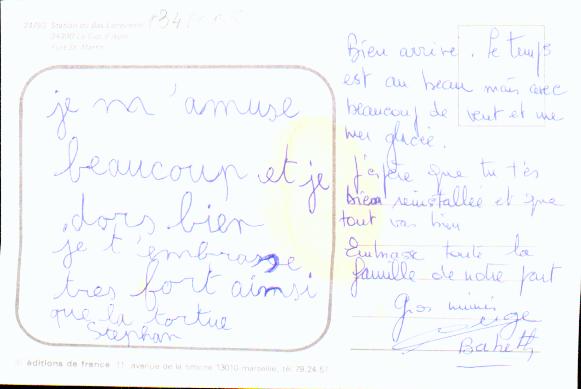 34300 Le Cap d'Agde
je m'amuse
beaucoup et je
dors bien
je t'embrasse
tres fort ainsi
que la tortue
Stephan
Bien arrivé. Le temps
est au beau mais avec
beaucoup de vent et une
mer glacée.
J'espère que tu t'es
bien reinstallée et que
tout va bien
Embrasse toute la
famille de notre part
Gros mimis
© éditions de france 11, avenue de la 13010 marseille, tél. 79.24.57